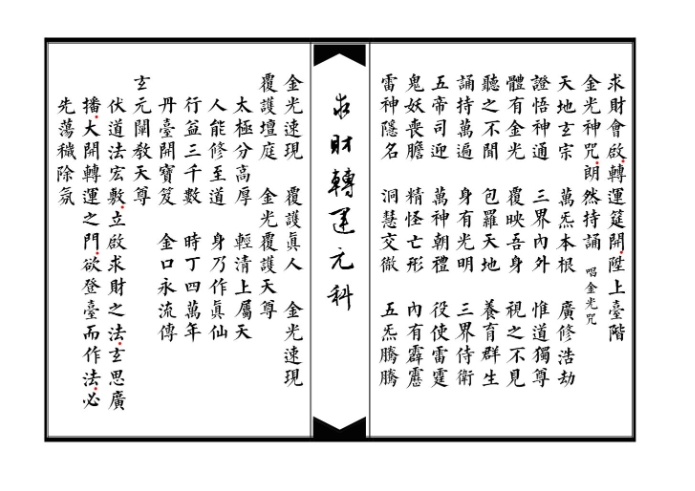 求財會啟轉運筵開陞上臺階
金光神咒朗然持誦 唱金光咒
天地玄宗 萬炁本根 廣修浩劫
證悟神通 三界內外 惟道獨尊
體有金光 覆映吾身 視之不見
聽之不聞 包羅天地 養育群生
誦持萬遍 身有光明 三界侍衛
五帝司迎 萬神朝禮 役使雷霆
鬼妖喪膽 精怪亡形 內有霹靂
雷神隱名 洞慧交徹 五炁騰騰
求財轉運元科
金光速現 覆護眞人 金光速現
覆護壇庭 金光覆護天尊
太極分高厚 輕清上屬天
人能修至道 身乃作眞仙
行益三千數 時丁四萬年
丹臺開寶笈 金口永流傳
玄元闡教天尊
伏道法宏敷立啟求財之法玄思廣
播大開轉運之門欲登臺而作法必
先蕩穢除氛